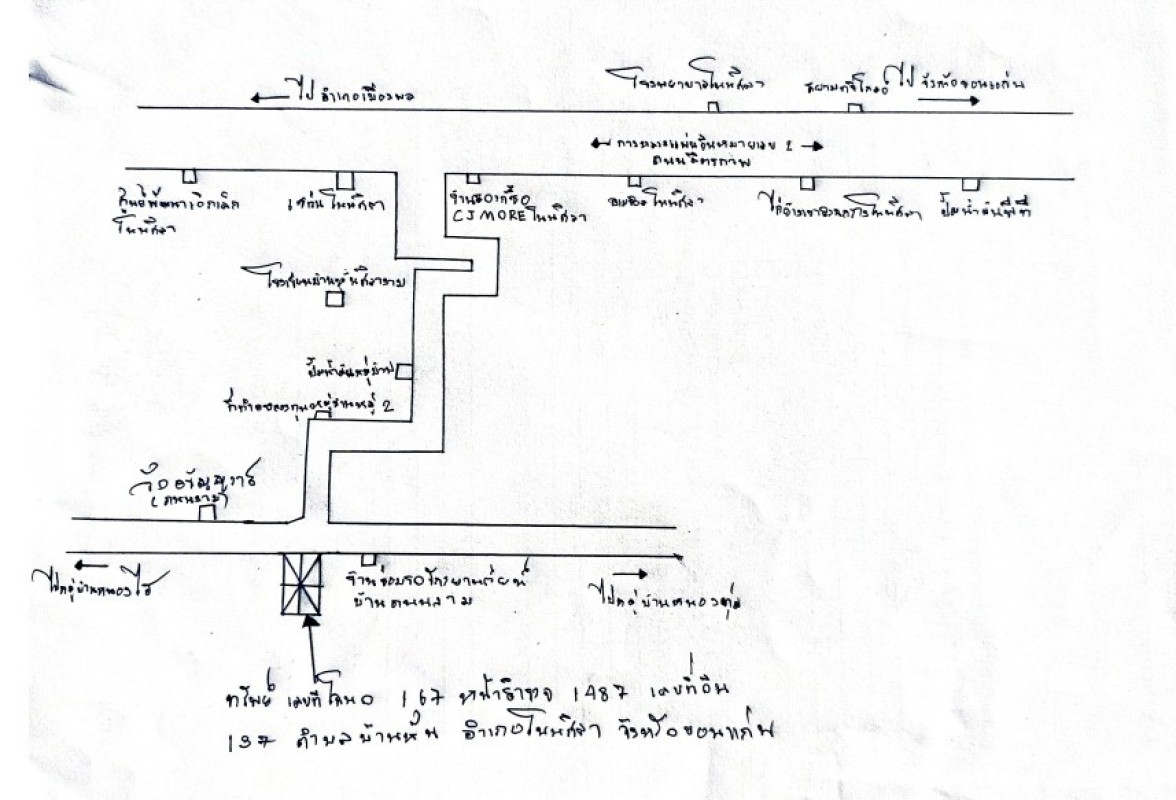 ไป อำเภอเมืองพล
โรงพยาบาลโนนศิลา
สยามคูโบต้า
ไป จังหวัดขอนแก่น
ทางหลวงแผ่นดินหมายเลข 2
ถนนมิตรภาพ
ศูนย์พัฒนาเด็กเล็ก
โนนศิลา
โนนศิลา
ร้าน
CJ MORE โนนศิลา
โนนศิลา
โนนศิลา
ปั๊มน้ำมันพีที
โรงเรียนบ้านหันศิลางาม
ปั๊มน้ำมันหมู่บ้าน
ที่ทำการกองทุนหมู่บ้านหมู่ 2
วัดอรัญญวาสี
ไปหมู่บ้านหนองไฮ
ร้านซ่อมรถจักรยานยนต์
ไปหมู่บ้านหนอง
ทรัพย์ เลขที่โฉนด 167 หน้าสำรวจ 1487 เลขที่ดิน
137 ตำบลบ้านหัน อำเภอโนนศิลา จังหวัดขอนแก่น